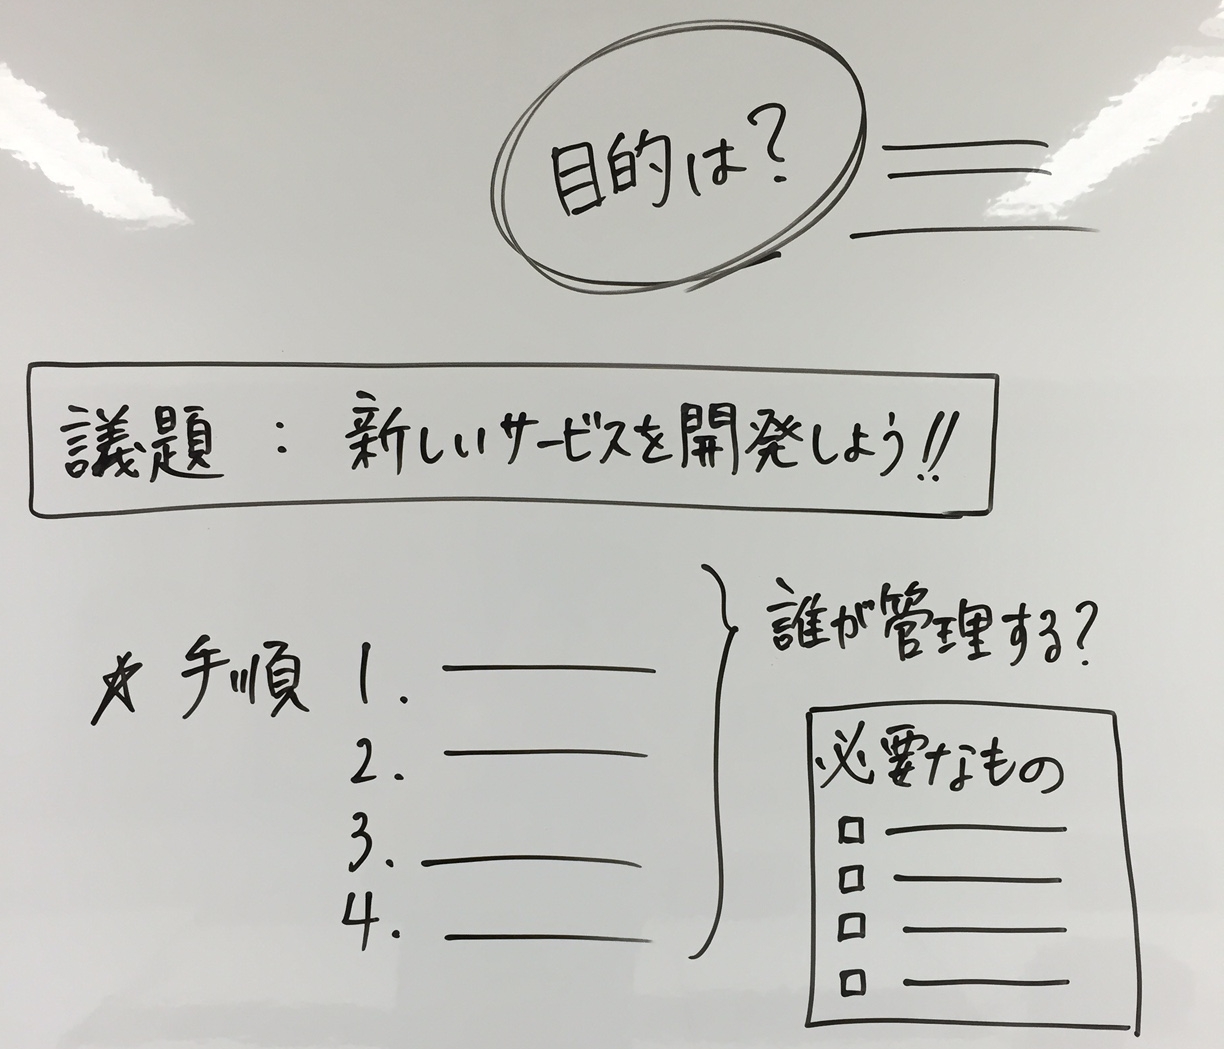 目的は?
議題 : 新しいサービスを開発しよう!!
誰が管理する?
☆ 手順 1.
2.
3.
4.
必要なもの